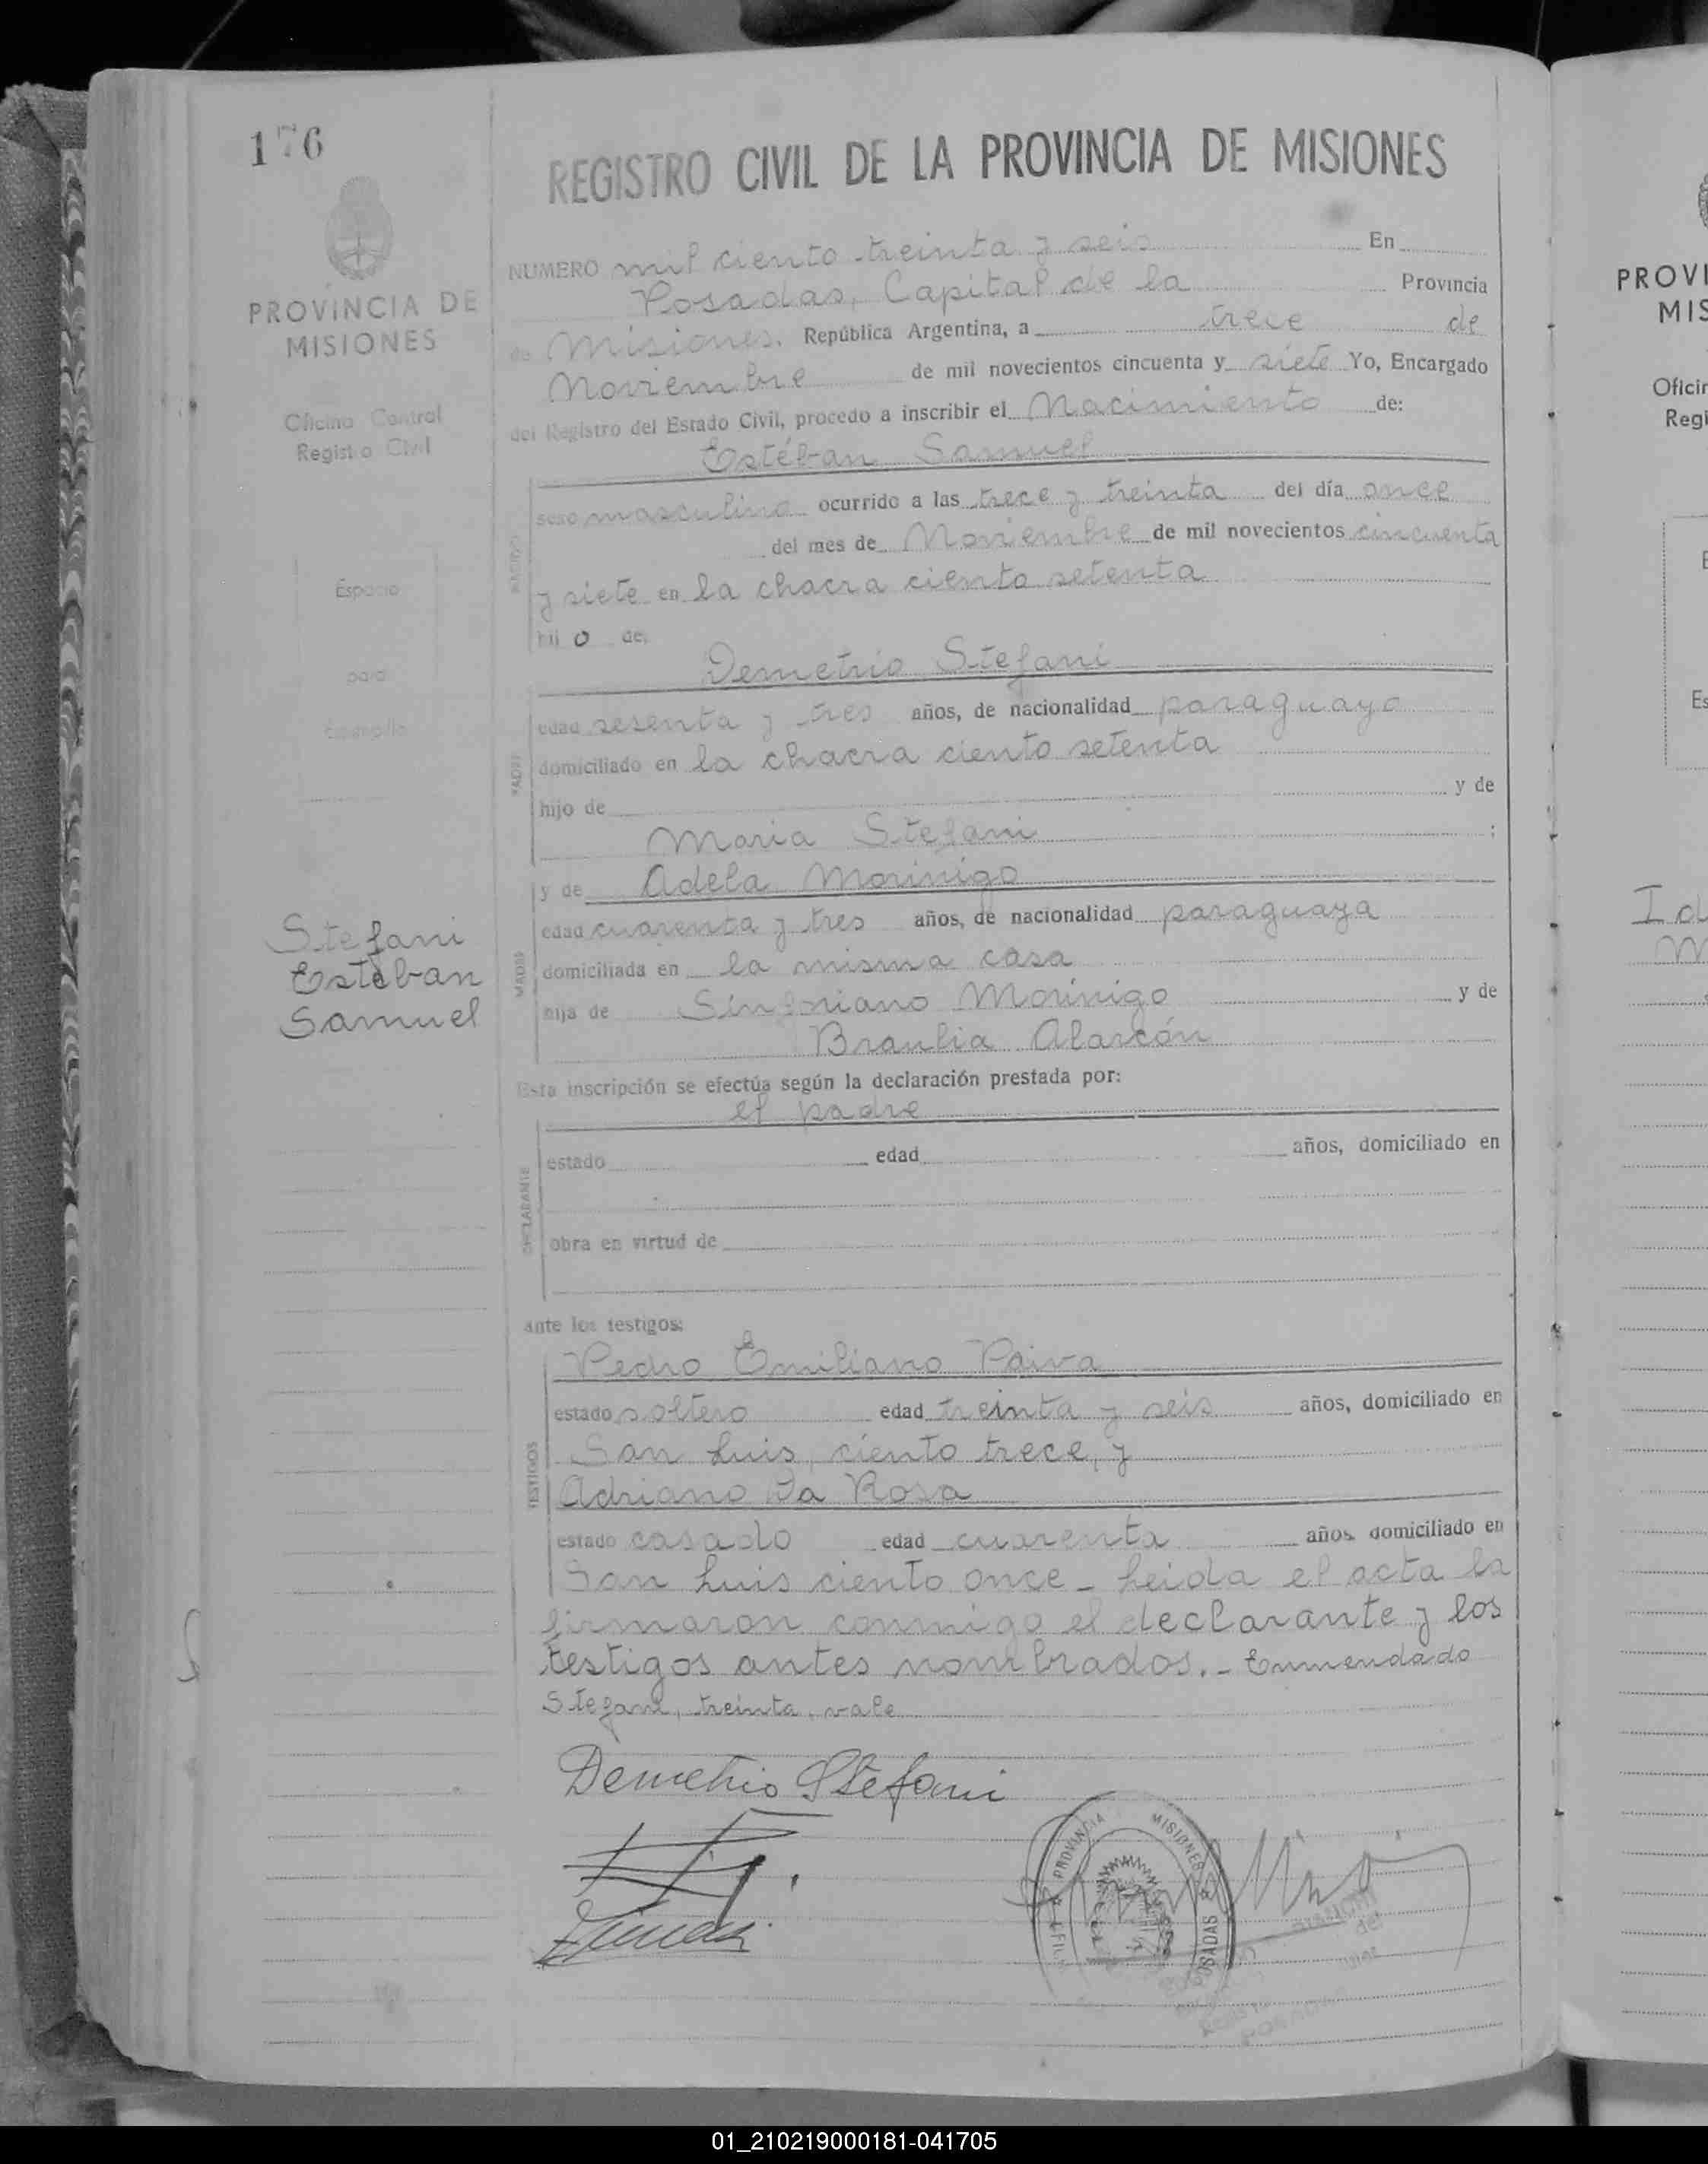 176
REGISTRO CIVIL DE LA PROVINCIA DE MISIONES
PROVINCIA DE
MISIONES
Oficina Central
Registro Civil
Espacio
para
Estampilla
Stefani
Estéban
Samuel
NUMERO mil ciento treinta y seis En
Posadas, Capital de la Provincia
de Misiones. República Argentina, a trece de
Noviembre de mil novecientos cincuenta y siete Yo, Encargado
del Registro del Estado Civil, procedo a inscribir el Nacimiento de:
Estéban Samuel
sexo masculino ocurrido a las trece y treinta del día once
del mes de Noviembre de mil novecientos cincuenta
y siete en la chacra ciento setenta
hij o de:
Demetrio Stefani
PADRE
edad sesenta y tres años, de nacionalidad paraguayo
domiciliado en la chacra ciento setenta
hijo de y de
Maria Stefani ;
y de Adela Morinigo
MADRE
edad cuarenta y tres años, de nacionalidad paraguaya
domiciliada en la misma casa
hija de Sinforiano Morínigo y de
Braulia Alarcón
Esta inscripción se efectúa según la declaración prestada por:
el padre
DECLARANTE
estado edad años, domiciliado en
obra en virtud de
ante los testigos:
Pedro Emiliano Paiva
TESTIGOS
estado soltero edad treinta y seis años, domiciliado en
San Luis, ciento trece, y
Adriano Da Rosa
estado casado edad cuarenta años, domiciliado en
San Luis ciento once - Leida el acta la
firmaron conmigo el declarante y los
testigos antes nombrados. - Enmendado
Stefani, treinta, vale
Demetrio Stefani
PROVINCIA MISIONES
POSADAS
PROVI
MIS
Oficin
Regi
E
Es
01_210219000181-041705